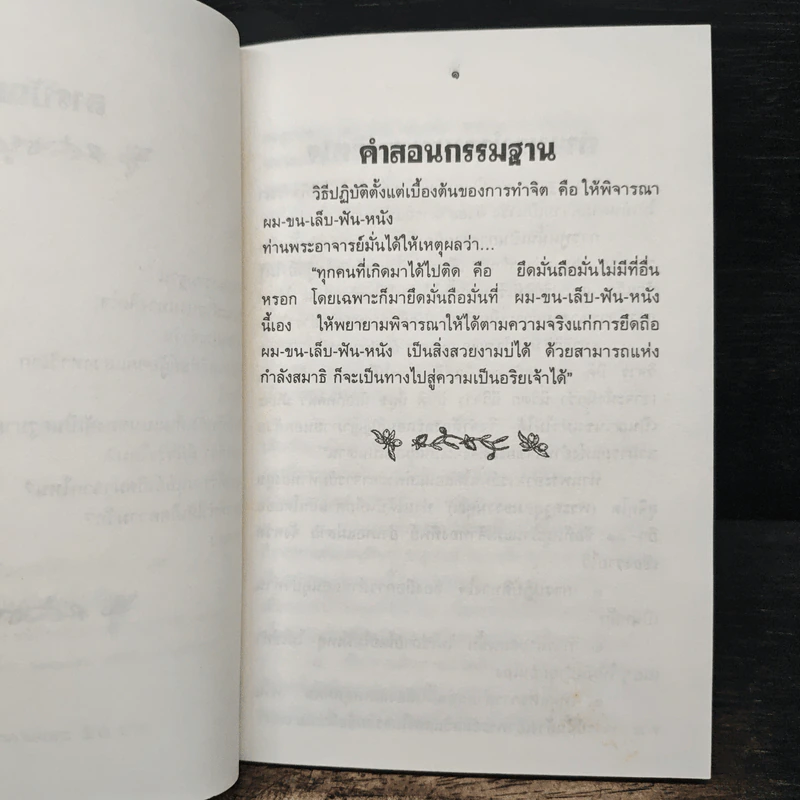 ๑
คำสอนกรรมฐาน
วิธีปฏิบัติตั้งแต่เบื้องต้นของการทำจิต คือ ให้พิจารณา
ผม-ขน-เล็บ-ฟัน-หนัง
ท่านพระอาจารย์มั่นได้ให้เหตุผลว่า...
“ทุกคนที่เกิดมาได้ไปติด คือ ยึดมั่นถือมั่นไม่มีที่อื่น
หรอก โดยเฉพาะก็มายึดมั่นถือมั่นที่ ผม-ขน-เล็บ-ฟัน-หนัง
นี้เอง ให้พยายามพิจารณาให้ได้ตามความจริงแก่การยึดถือ
ผม-ขน-เล็บ-ฟัน-หนัง เป็นสิ่งสวยงามบ่ได้ ด้วยสามารถแห่ง
กำลังสมาธิ ก็จะเป็นทางไปสู่ความเป็นอริยเจ้าได้”